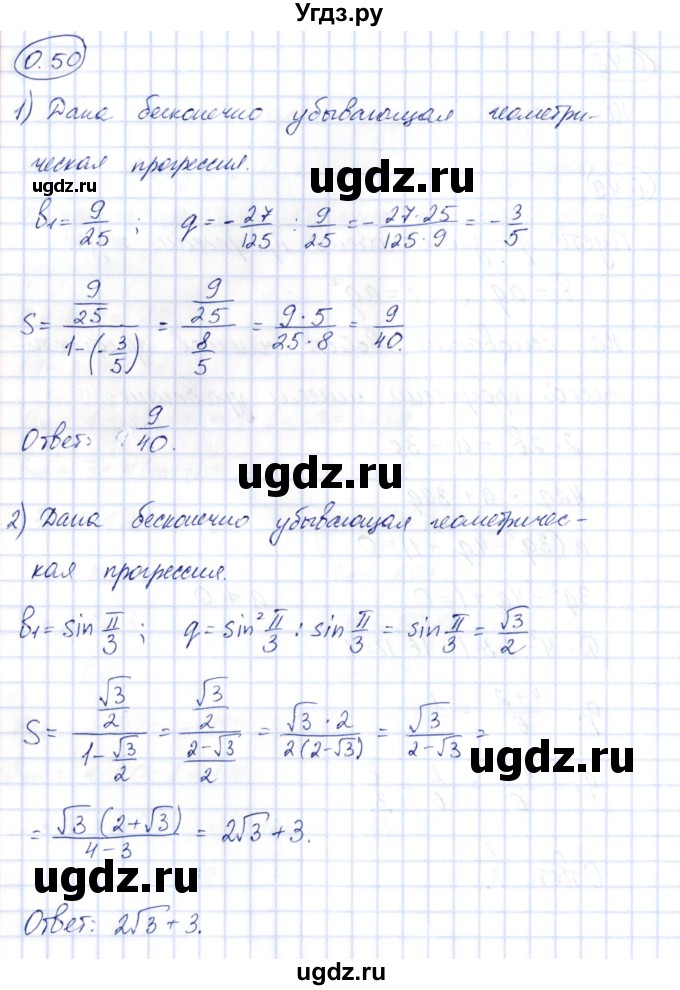 Угдз.ру
0.50
1) Дана бесконечно убывающая геометри-
ческая прогрессия.
ugdz.ru
ugdz.ru
b₁ = 9/25 ; q = -27/125 : 9/25 = -27·25/125·9 = -3/5
S = (9/25)/(1-(-3/5)) = (9/25)/(8/5) = 9·5/25·8 = 9/40.
ugdz.ru
Ответ: 9/40.
ugdz.ru
2) Дана бесконечно убывающая геометричес-
кая прогрессия.
ugdz.ru
b₁ = sin π/3 ; q = sin² π/3 : sin π/3 = sin π/3 = √3/2
S = (√3/2)/(1-√3/2) = (√3/2)/((2-√3)/2) = √3·2/2(2-√3) = √3/(2-√3) =
ugdz.ru
= √3(2+√3)/(4-3) = 2√3+3.
ugdz.ru
Ответ: 2√3+3.
ugdz.ru
ugdz.ru